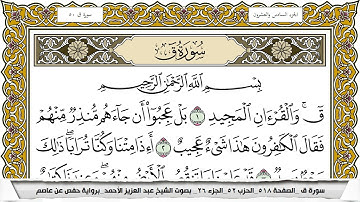 الجزء السادس والعشرون
سورة ق ٥٠
سُورَةُ قٓ
بِسْمِ ٱللَّهِ ٱلرَّحْمَٰنِ ٱلرَّحِيمِ
قٓ ۚ وَٱلْقُرْءَانِ ٱلْمَجِيدِ ١ بَلْ عَجِبُوٓا۟ أَن جَآءَهُم مُّنذِرٌ مِّنْهُمْ
فَقَالَ ٱلْكَٰفِرُونَ هَٰذَا شَىْءٌ عَجِيبٌ ٢ أَءِذَا مِتْنَا وَكُنَّا تُرَابًا ۖ ذَٰلِكَ
سورة ق _الصفحة ٥١٨_الحزب ٥٢_الجزء ٢٦_ بصوت الشيخ عبد العزيز الأحمد_برواية حفص عن عاصم